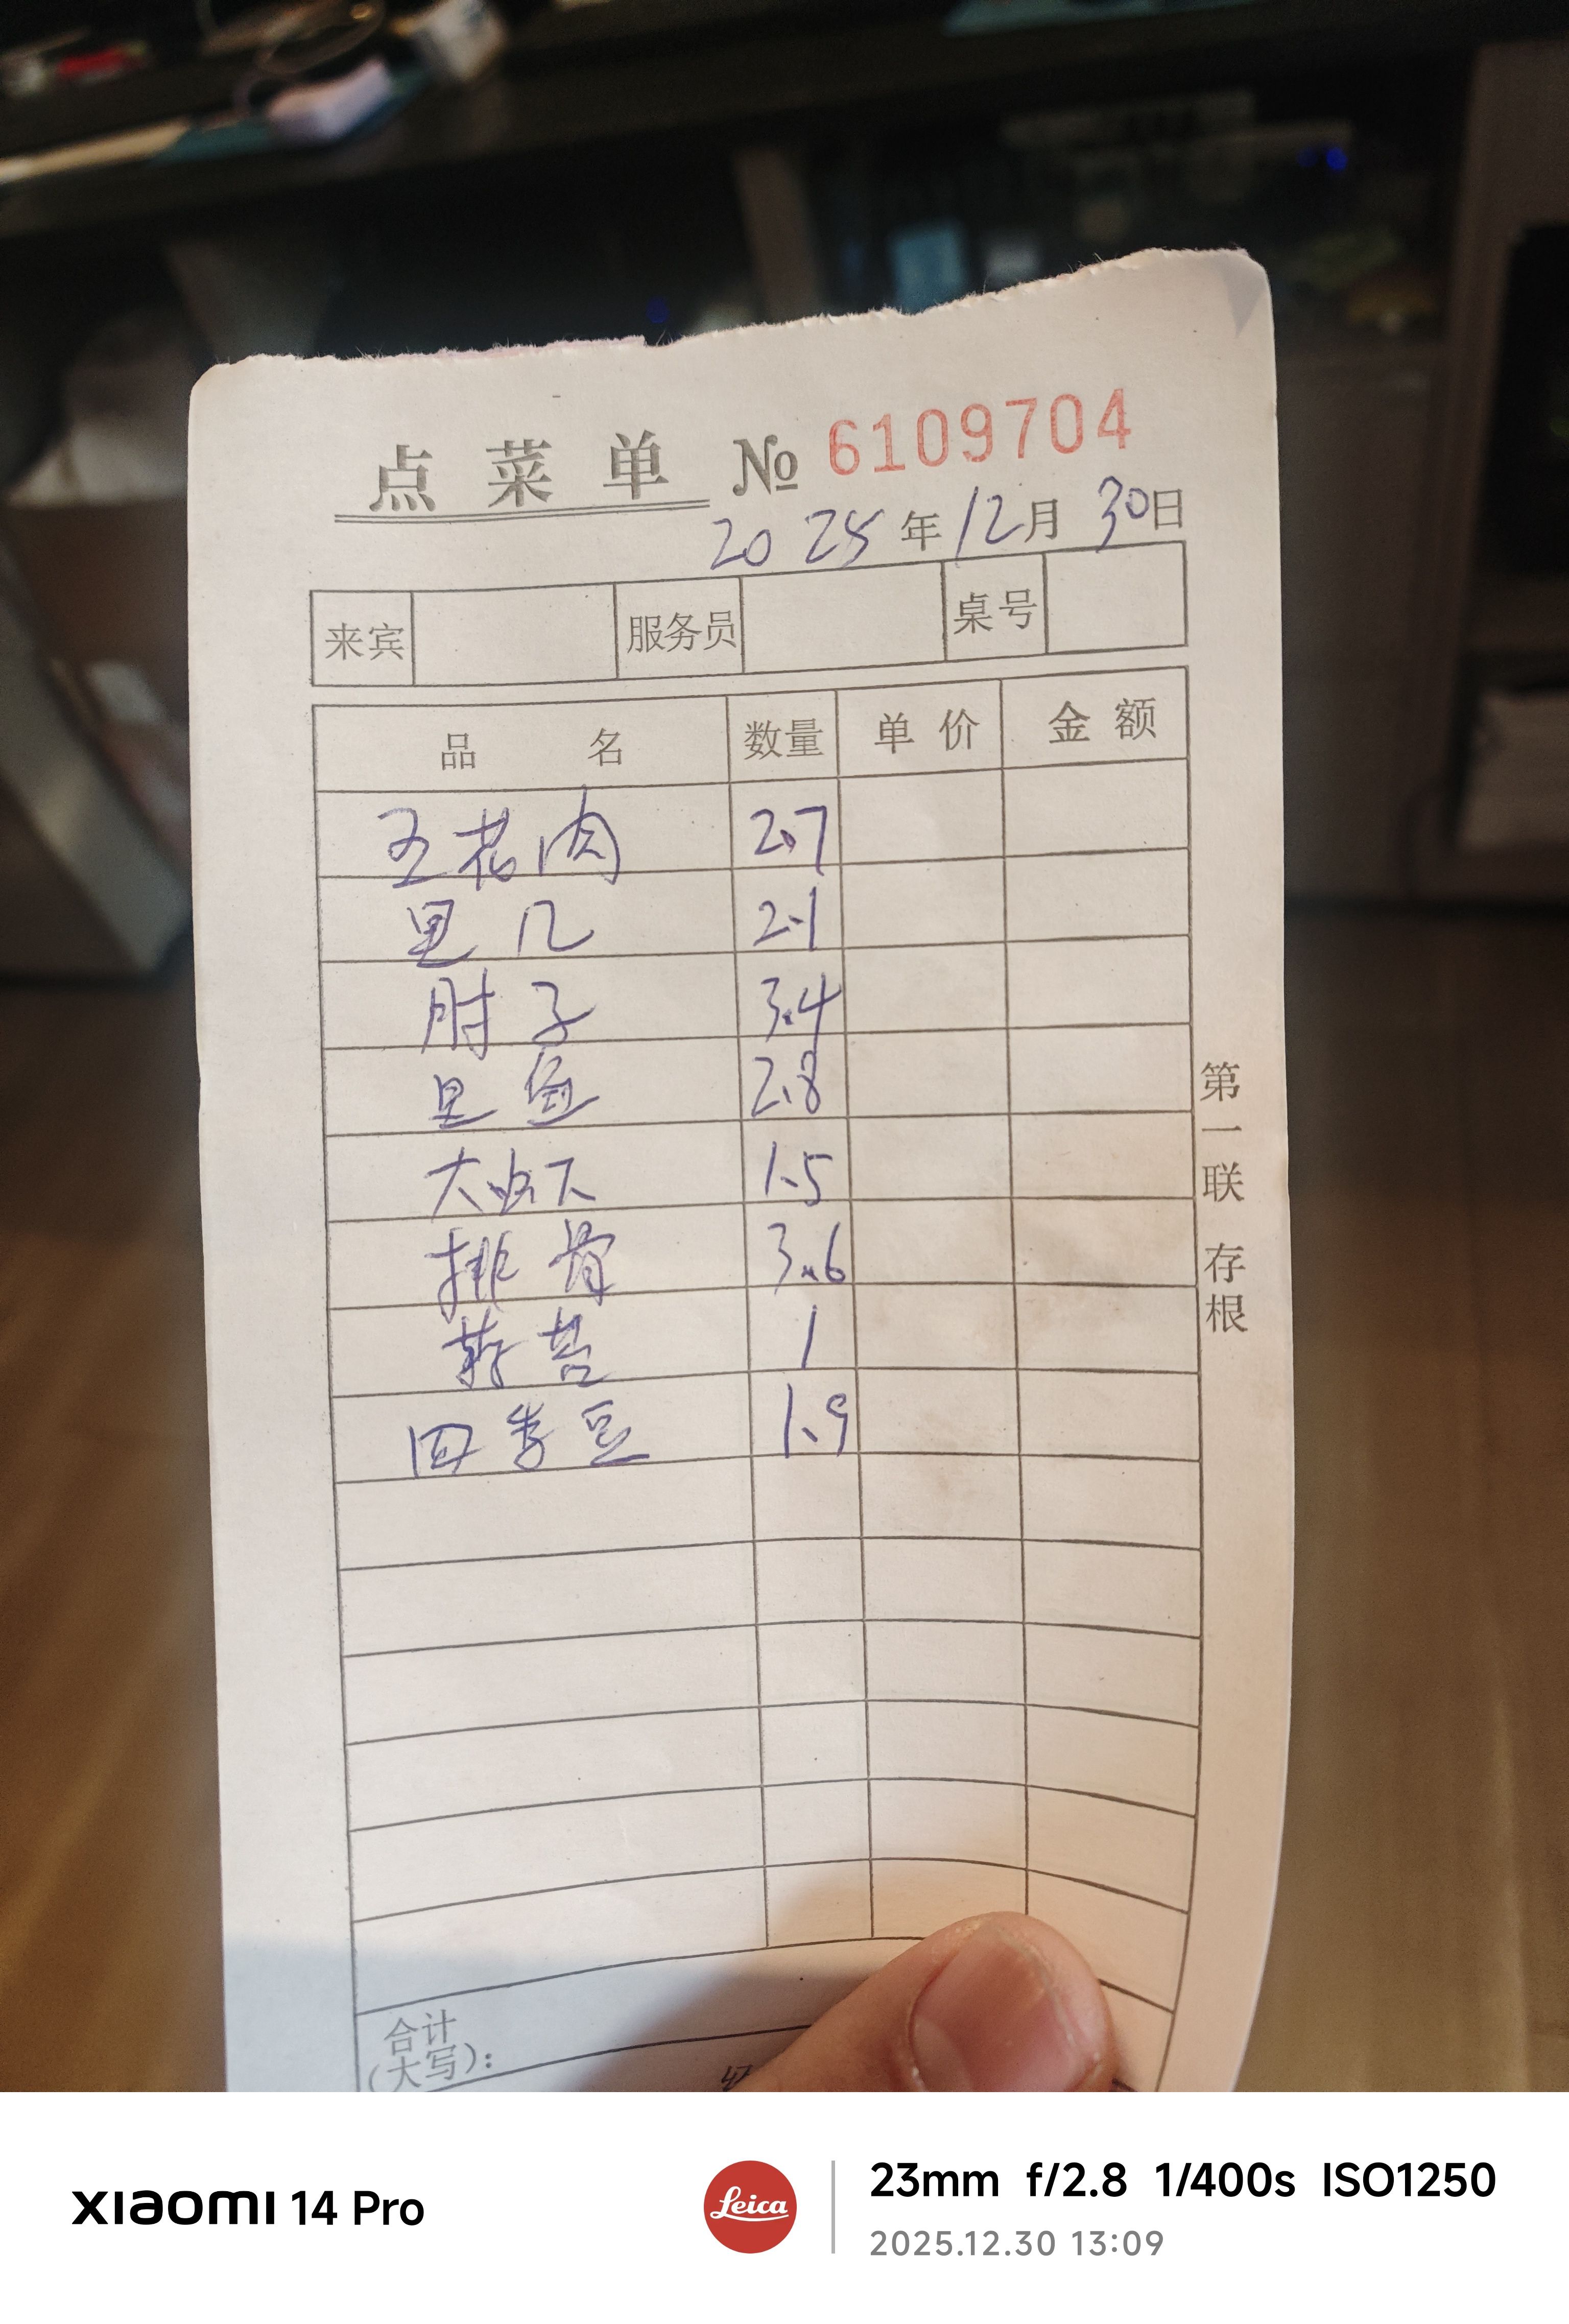 点菜单 № 6109704
2025年12月30日
来宾 服务员 桌号
品名 数量 单价 金额
五花肉 2.7
里几 2.1
肘子 3.4
里鱼 2.8
大下 1.5
排骨 3.6
蘑菇 1
四季豆 1.9
第一联 存根
合计
(大写):
xiaomi 14 Pro
Leica
23mm f/2.8 1/400s ISO1250
2025.12.30 13:09